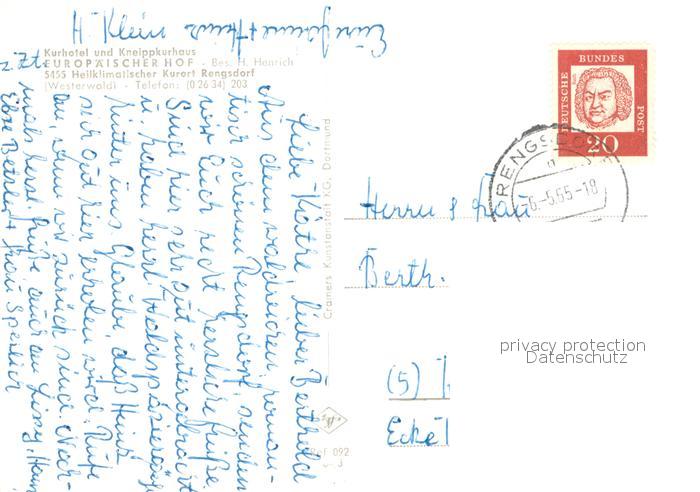 H. Klein
Kurhotel und Kneippkurhaus
EUROPÄISCHER HOF - Bes. H. Henrich
5455 Heilklimatischer Kurort Rengsdorf
(Westerwald) - Telefon: (0 26 34) 203
z. Zt.
Liebe Käthe, lieber Berthold
Aus dem waldreichen roman-
tisch schönen Rengsdorf senden
wir Euch recht herzliche Grüße.
Sind hier sehr gut untergebracht
u. haben herrl. Waldspaziergänge
hinter uns. Glaube, daß Heinz
sich gut hier erholen wird. Rufe
an, wenn wir zurück sind. Noch-
mals herzl. Grüße auch an
Cramers Kunstanstalt KG, Dortmund
Ref 092
DEUTSCHE BUNDES POST
20
RENGSDORF
-6.-5.65-18
Herrn & Frau
Berth.
(5)
Eckel
privacy protection
Datenschutz